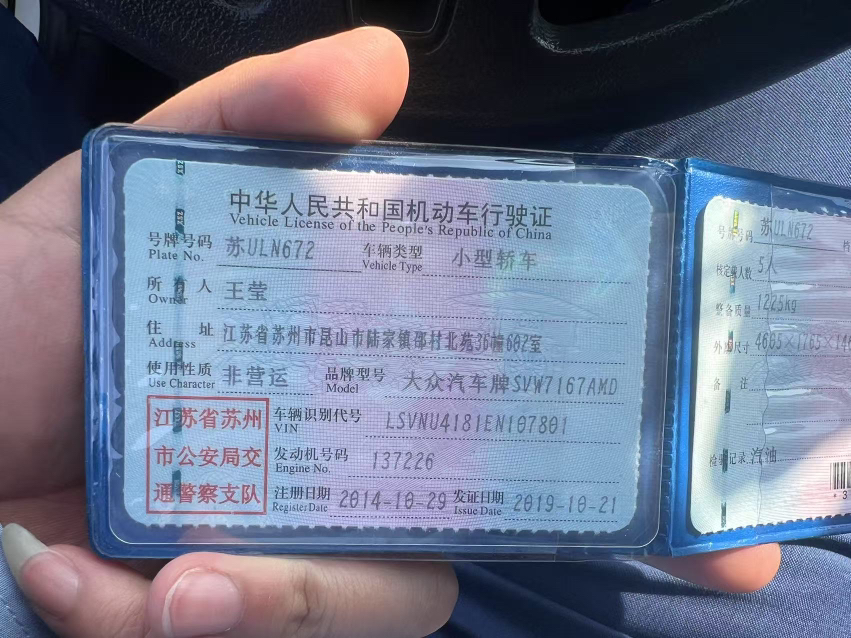 中华人民共和国机动车行驶证
Vehicle License of the People's Republic of China
号牌号码 苏ULN672 车辆类型 小型轿车
Plate No. Vehicle Type
所有人 王莹
Owner
住址 江苏省苏州市昆山市陆家镇邵村北苑36幢602室
Address
使用性质 非营运 品牌型号 大众汽车牌SVW7167AMD
Use Character Model
江苏省苏州
市公安局交
通警察支队
车辆识别代号 LSVNU4181EN107801
VIN
发动机号码 137226
Engine No.
注册日期 2014-10-29 发证日期 2019-10-21
Register Date Issue Date
号牌号码 苏ULN672
核定载人数 5人
整备质量 1225kg
外廓尺寸 4665×1765×146
备注
检验记录 汽油